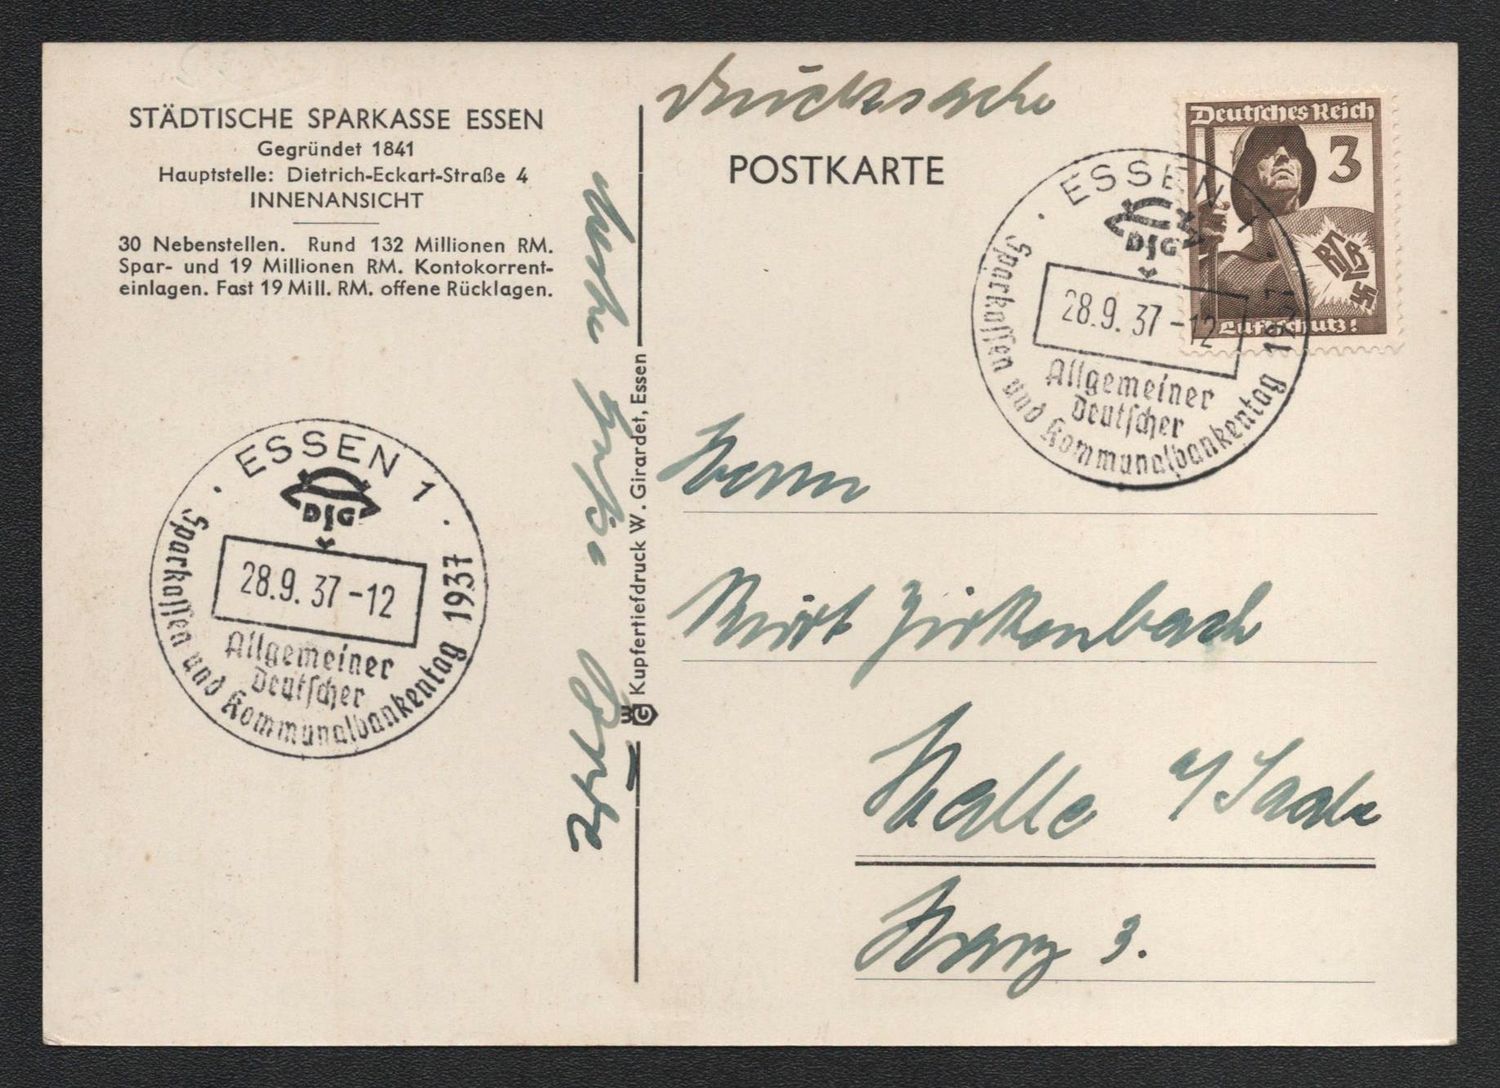 STÄDTISCHE SPARKASSE ESSEN
Gegründet 1841
Hauptstelle: Dietrich-Eckart-Straße 4
INNENANSICHT
30 Nebenstellen. Rund 132 Millionen RM.
Spar- und 19 Millionen RM. Kontokorrent-
einlagen. Fast 19 Mill. RM. offene Rücklagen.
ESSEN 1
DSG
28.9.37-12
Allgemeiner
Deutscher
Sparkassen und Kommunalbankentag 1937
Grüße
Kupfertiefdruck W. Girardet, Essen
WG
Drucksache
POSTKARTE
Deutsches Reich
3
RLB
Luftschutz!
ESSEN 1
DSG
28.9.37-12
Allgemeiner
Deutscher
Sparkassen und Kommunalbankentag 1937
Herrn
Kurt Zirkenbach
Halle a/Saale
Harz 3.